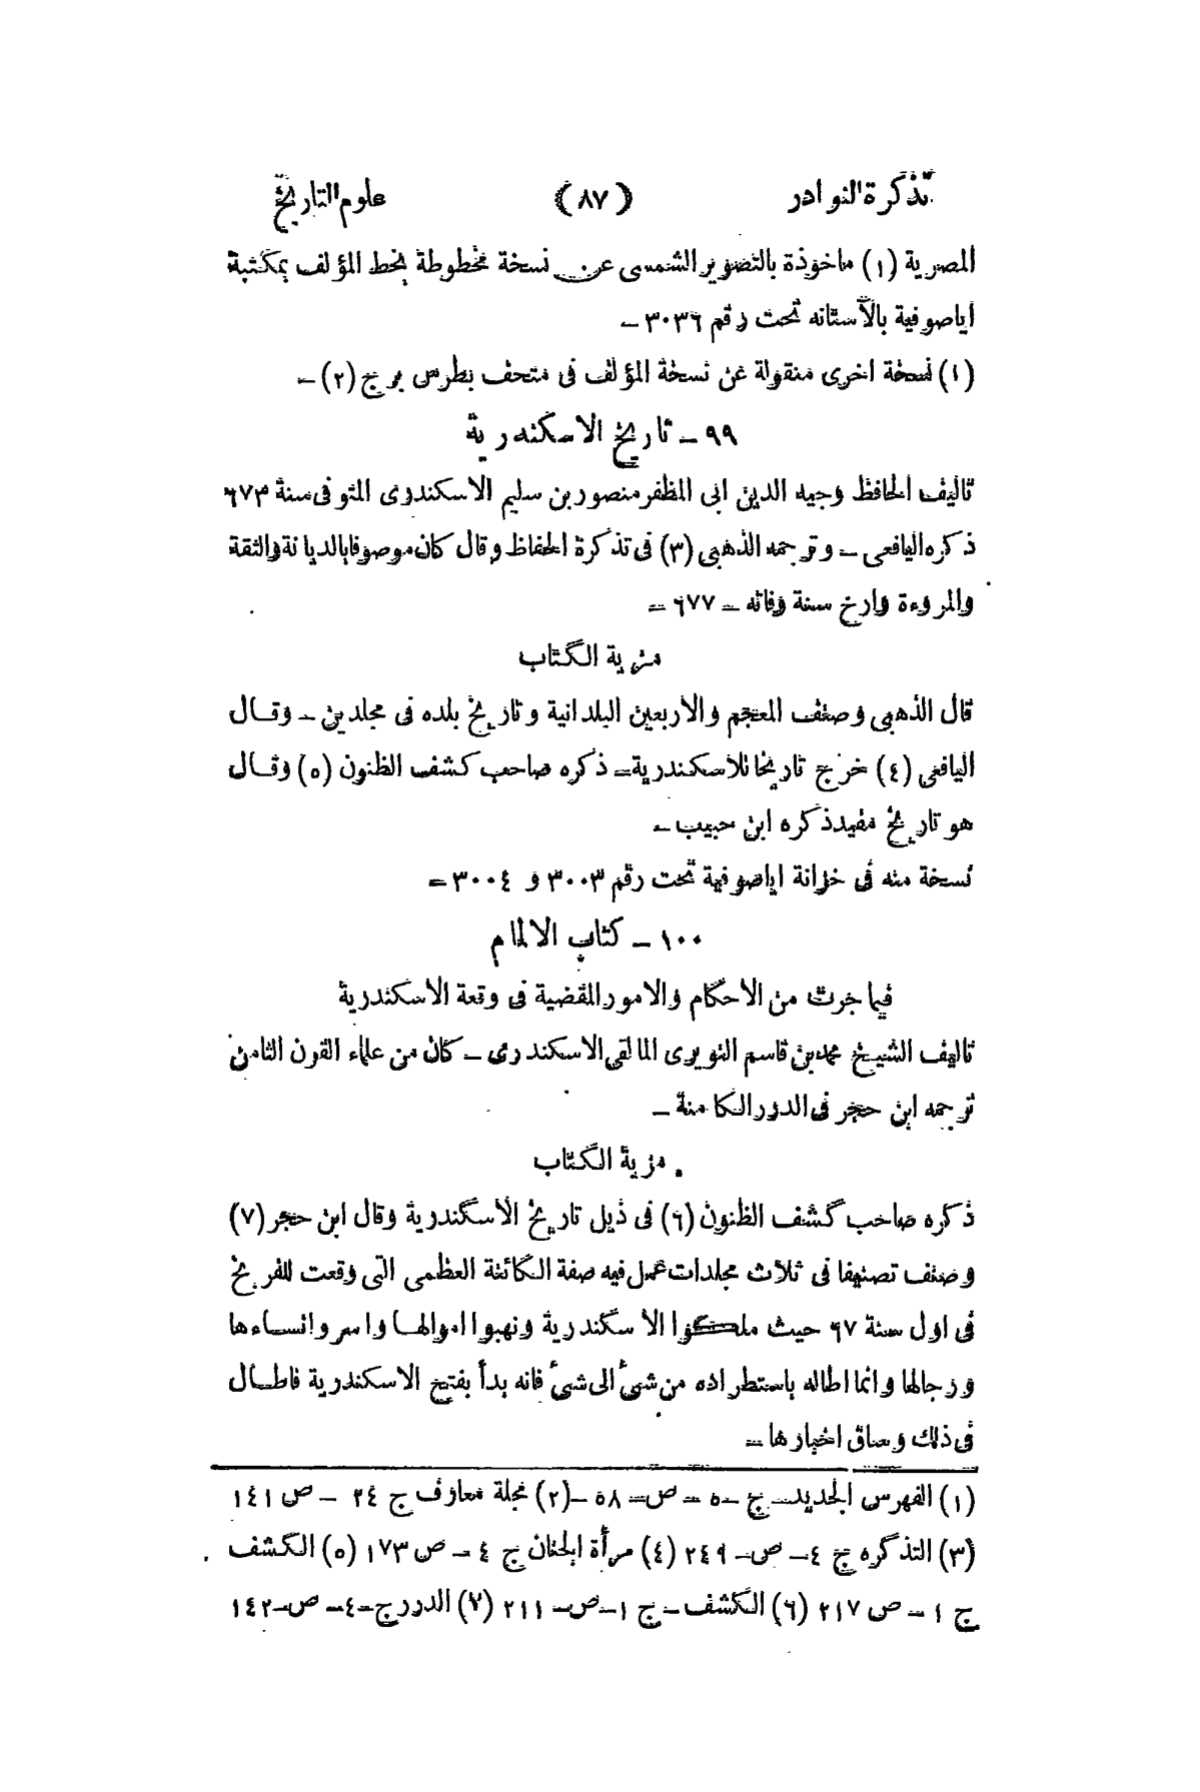 تذكرة النوادر (٨٧) علوم التاريخ
المصرية (١) ماخوذة بالتصوير الشمسى عن نسخة مخطوطة بخط المؤلف بمكتبة
اياصوفية بالآستانه تحت رقم ٣٠٣٦ –
(١) نسخة اخرى منقولة عن نسخة المؤلف فى متحف بطرس برج (٢) –
٩٩ – تاريخ الاسكندرية
تاليف الحافظ وجيه الدين ابى المظفر منصور بن سليم الاسكندرى المتوفى سنة ٦٧٣
ذكره اليافعى – وترجمه الذهبى (٣) فى تذكرة الحفاظ وقال كان موصوفا بالديانة والثقة
والمروءة وارخ سنة وفاته – ٦٧٧ –
مزية الكتاب
قال الذهبى وصنف المعجم والاربعين البلدانية وتاريخ بلده فى مجلدين – وقال
اليافعى (٤) خرج تاريخا للاسكندرية – ذكره صاحب كشف الظنون (٥) وقال
هو تاريخ مفيد ذكره ابن حبيب –
نسخة منه فى خزانة اياصوفية تحت رقم ٣٠٠٣ و ٣٠٠٤ –
١٠٠ – كتاب الالمام
فيما جرت من الاحكام والامور المقضية فى وقعة الاسكندرية
تاليف الشيخ محمد بن قاسم النويرى المالقى الاسكندرى – كان من علماء القرن الثامن
ترجمه ابن حجر فى الدرر الكامنة –
مزية الكتاب
ذكره صاحب كشف الظنون (٦) فى ذيل تاريخ الاسكندرية وقال ابن حجر (٧)
وصنف تصنيفا فى ثلاث مجلدات عمل فيه صفة الكائنة العظمى التى وقعت للفرنج
فى اول سنة ٦٧ حيث ملكوا الاسكندرية ونهبوا اموالها واسروا نساءها
ورجالها وانما اطاله باستطراده من شئ الى شئ فانه بدأ بفتح الاسكندرية فاطال
فى ذلك وساق اخبارها –
(١) الفهرس الجديد – ج – ٥ – ص – ٥٨ – (٢) مجلة معارف ج ٢٤ – ص ١٤١
(٣) التذكره ج ٤ – ص – ٢٤٩ (٤) مرأة الجنان ج ٤ – ص ١٧٣ (٥) الكشف
ج ١ – ص ٢١٧ (٦) الكشف – ج ١ – ص – ٢١١ (٧) الدرر ج – ٤ – ص – ١٤٢